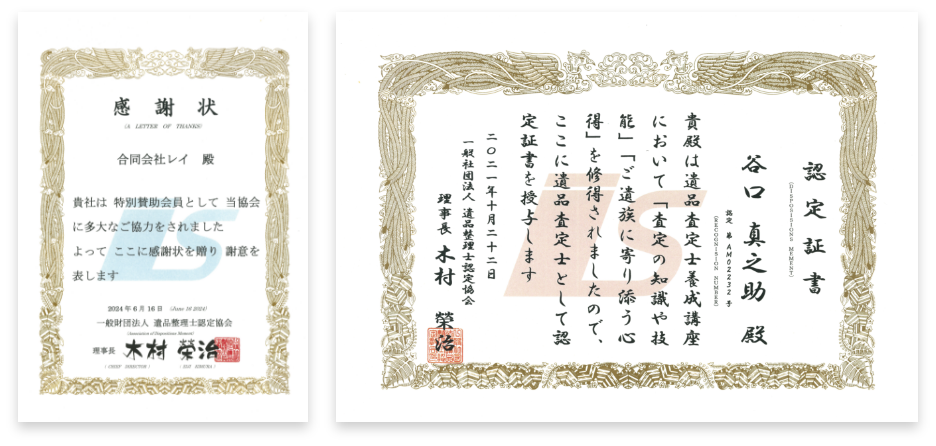 感謝状
(A LETTER OF THANKS)
合同会社レイ 殿
貴社は 特別賛助会員として 当協会
に多大なご協力をされました
よって ここに感謝状を贈り 謝意を
表します
2024年6月16日 (June 16 2024)
一般財団法人 遺品整理士認定協会
(Association of Dispositions Mement)
理事長 木村 榮治
(CHIEF DIRECTOR) (EIJI KIMURA)
認定証書
(DISPOSITIONS MEMENT)
谷口 真之助 殿
認定 第 AM02232 号
(RECOGNISION NUMBER)
貴殿は遺品査定士養成講座
において「査定の知識や技
能」「ご遺族に寄り添う心
得」を修得されましたので、
ここに遺品査定士として認
定証書を授与します
二〇二一年十月二十二日
一般社団法人 遺品整理士認定協会
理事長 木村 榮治